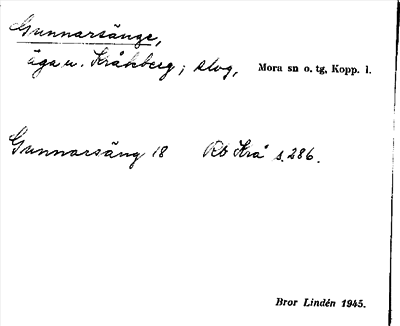 Gunnarsänge,
äga u. Kråkberg; skog, Mora sn o. tg, Kopp. l.
Gunnarsäng 18 Rb Krå s. 286.
Bror Lindén 1945.